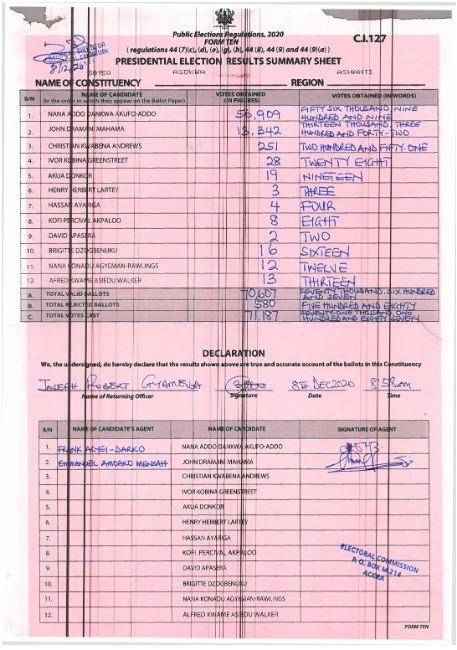 Public Elections Regulations, 2020
FORM TEN
C.I.127
( regulations 44(7)(c), (d), (e), (g), (h), 44(8), 44(9) and 44(9)(a) )
PRESIDENTIAL ELECTION RESULTS SUMMARY SHEET
8/12/20
ASOKWA ASHANTI
NAME OF CONSTITUENCY REGION
S/N NAME OF CANDIDATE VOTES OBTAINED VOTES OBTAINED (IN WORDS)
(In the order in which they appear on the Ballot Paper) (IN FIGURES)
1. NANA ADDO DANKWA AKUFO-ADDO 56,909 FIFTY SIX THOUSAND, NINE HUNDRED AND NINE
2. JOHN DRAMANI MAHAMA 13,342 THIRTEEN THOUSAND, THREE HUNDRED AND FORTY-TWO
3. CHRISTIAN KWABENA ANDREWS 251 TWO HUNDRED AND FIFTY-ONE
4. IVOR KOBINA GREENSTREET 28 TWENTY EIGHT
5. AKUA DONKOR 19 NINETEEN
6. HENRY HERBERT LARTEY 3 THREE
7. HASSAN AYARIGA 4 FOUR
8. KOFI PERCIVAL AKPALOO 8 EIGHT
9. DAVID APASERA 2 TWO
10. BRIGITTE DZOGBENUKU 16 SIXTEEN
11. NANA KONADU AGYEMAN-RAWLINGS 12 TWELVE
12. ALFRED KWAME ASIEDU WALKER 13 THIRTEEN
A. TOTAL VALID BALLOTS 70,607 SEVENTY THOUSAND, SIX HUNDRED AND SEVEN
B. TOTAL REJECTED BALLOTS 580 FIVE HUNDRED AND EIGHTY
C. TOTAL VOTES CAST 71,187 SEVENTY-ONE THOUSAND, ONE HUNDRED AND EIGHTY SEVEN
DECLARATION
We, the undersigned, do hereby declare that the results shown above are true and accurate account of the ballots in this Constituency
JOSEPH ROBERT 8TH DEC 2020 8:58am
Name of Returning Officer Signature Date Time
S/N NAME OF CANDIDATE'S AGENT NAME OF CANDIDATE SIGNATURE OF AGENT
1. FRANK AGYEI-DARKO NANA ADDO DANKWA AKUFO-ADDO
2. EMMANUEL AMOAKO MENSAH JOHN DRAMANI MAHAMA
3. CHRISTIAN KWABENA ANDREWS
4. IVOR KOBINA GREENSTREET
5. AKUA DONKOR
6. HENRY HERBERT LARTEY
7. HASSAN AYARIGA
8. KOFI PERCIVAL AKPALOO
9. DAVID APASERA
10. BRIGITTE DZOGBENUKU
11. NANA KONADU AGYEMAN-RAWLINGS
12. ALFRED KWAME ASIEDU WALKER
ELECTORAL COMMISSION
P. O. BOX M.214
ACCRA
FORM TEN